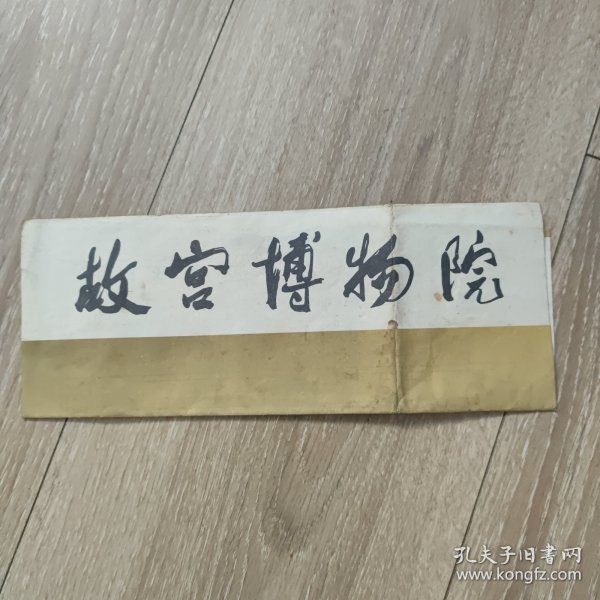 故宫博物院
孔夫子旧書网
www.kongfz.com